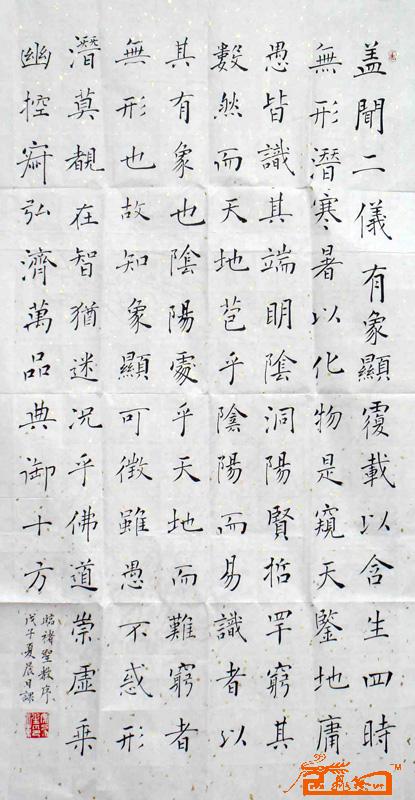 盖聞二儀有象顯覆載以含生四時
無形潛寒暑以化物是窺天鑒地庸
愚皆識其端明陰洞陽賢哲罕窮其
數然而天地苞乎陰陽而易識者以
其有象也陰陽處乎天地而難窮者
無形也故知象顯可徵雖愚不惑形
潛莫覩在智猶迷況乎佛道崇虛乗
幽控寂弘濟萬品典御十方
臨褚聖教序
戊子夏晨日課